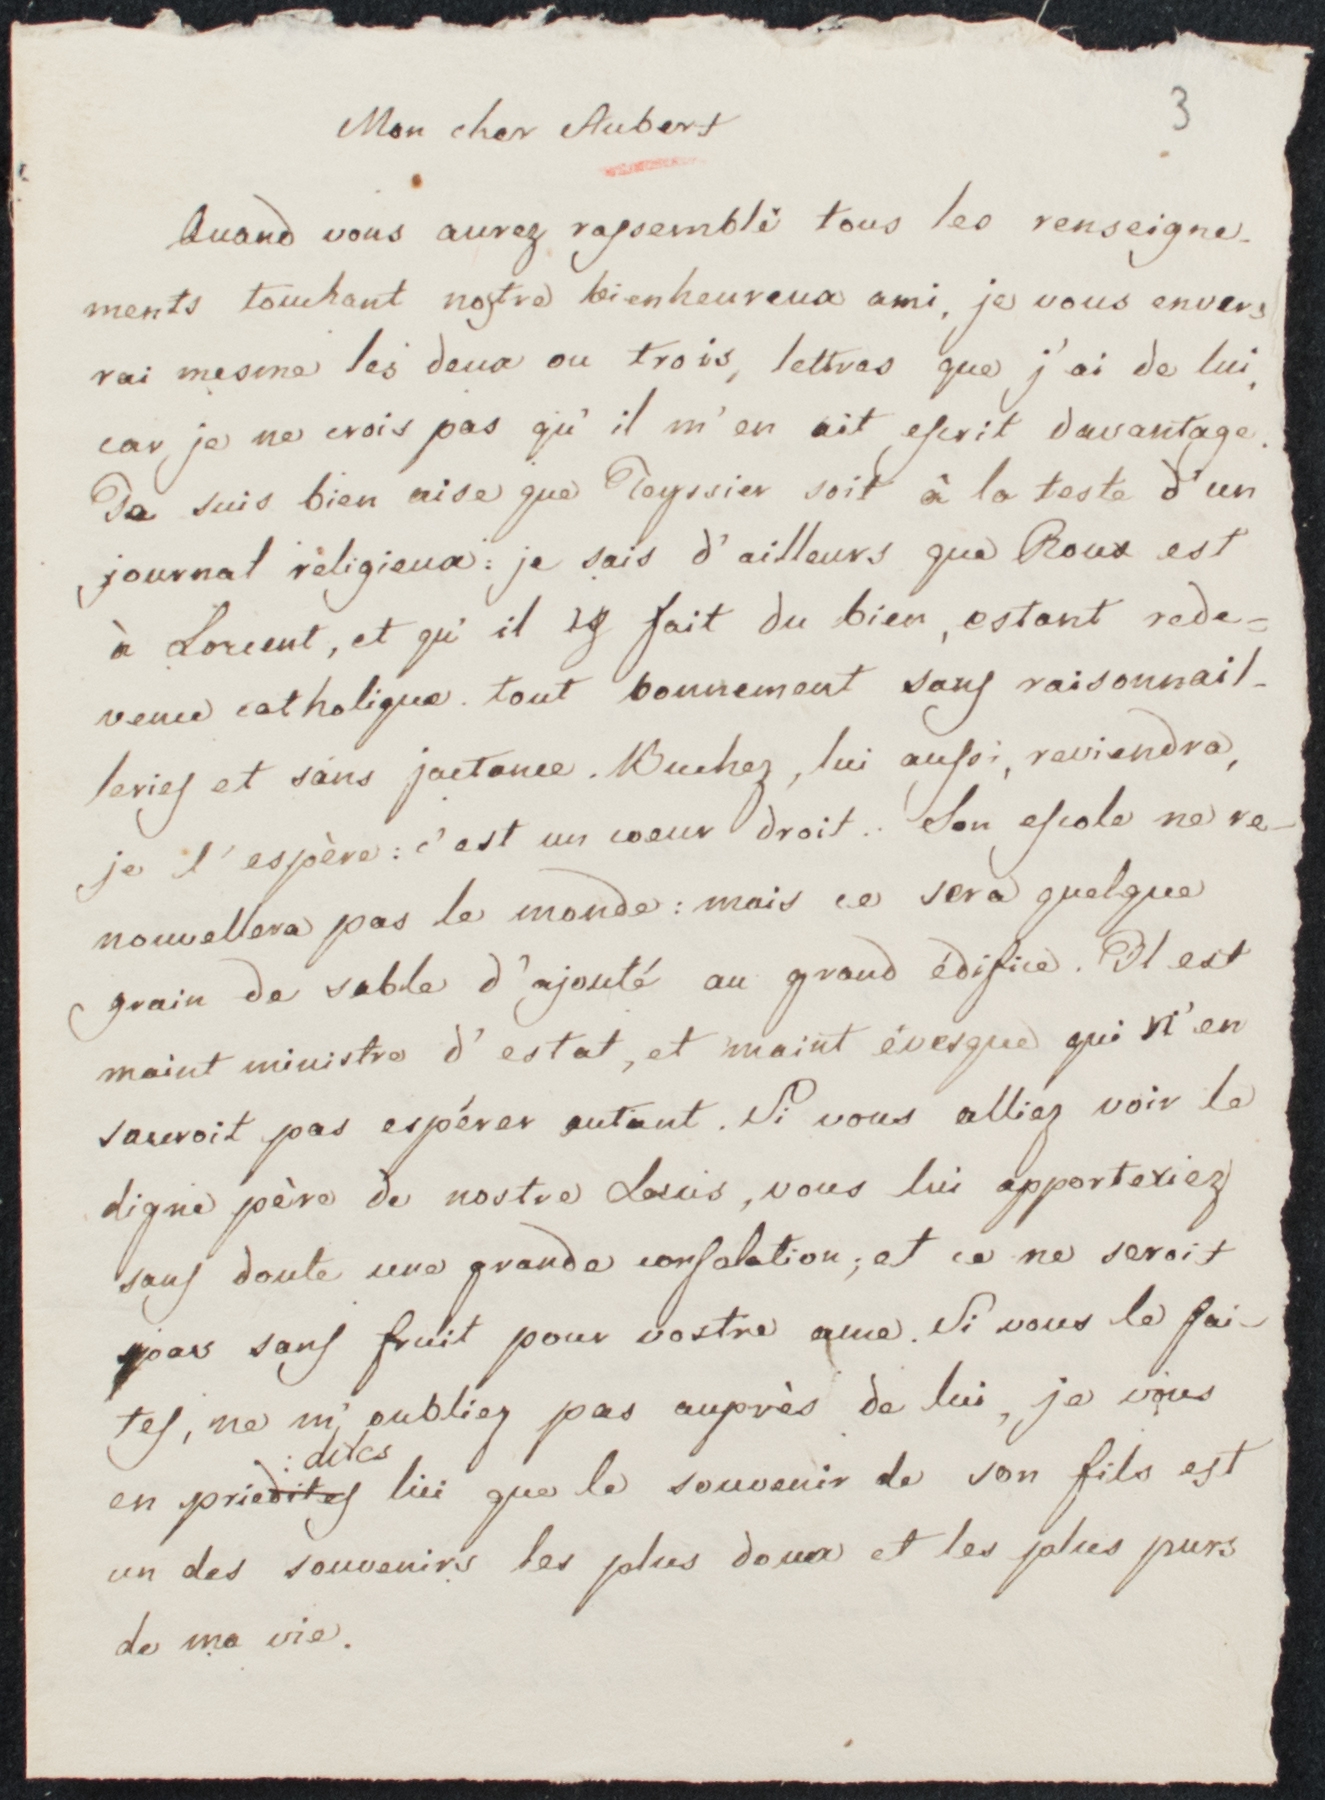 3
Mon cher Aubert
Quand vous aurez rassemblé tous les renseigne-
ments touchant nostre bienheureux ami, je vous enver-
rai mesme les deux ou trois, lettres que j'ai de lui,
car je ne crois pas qu'il m'en ait escrit davantage.
Je suis bien aise que Teyssier soit à la teste d'un
journal religieux : je sais d'ailleurs que Roux est
à Lorient, et qu'il y fait du bien, estant rede=
venu catholique tout bonnement sans raisonnail-
leries et sans jactance. Buchez, lui aussi, reviendra,
je l'espère : c'est un coeur droit. Son escole ne re-
nouvellera pas le monde : mais ce sera quelque
grain de sable d'ajouté au grand édifice. Il est
maint ministre d'estat, et maint évesque qui n'en
sauroit pas espérer autant. Si vous alliez voir le
digne père de nostre Louis, vous lui apporteriez
sans doute une grande consolation ; et ce ne seroit
pas sans fruit pour vostre ame. Si vous le fai-
tes, ne m'oubliez pas auprès de lui, je vous
: dites
en prie dites lui que le souvenir de son fils est
un des souvenirs les plus doux et les plus purs
de ma vie.